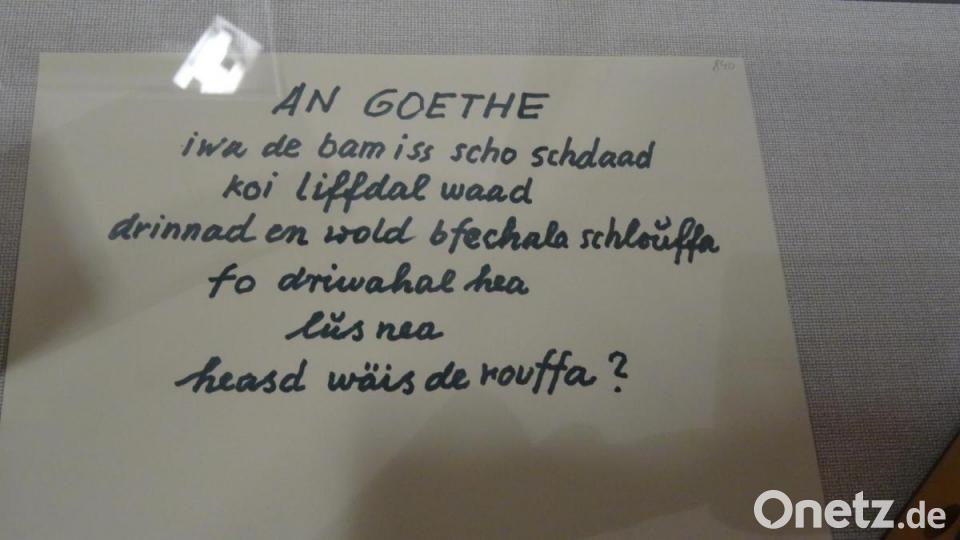 840
AN GOETHE
iwa de bam iss scho schdaad
koi liffdal waad
drinnad en wold bfechala schloŭffa
fo driwahal hea
lŭs nea
heasd wäis de rouffa?
Onetz.de